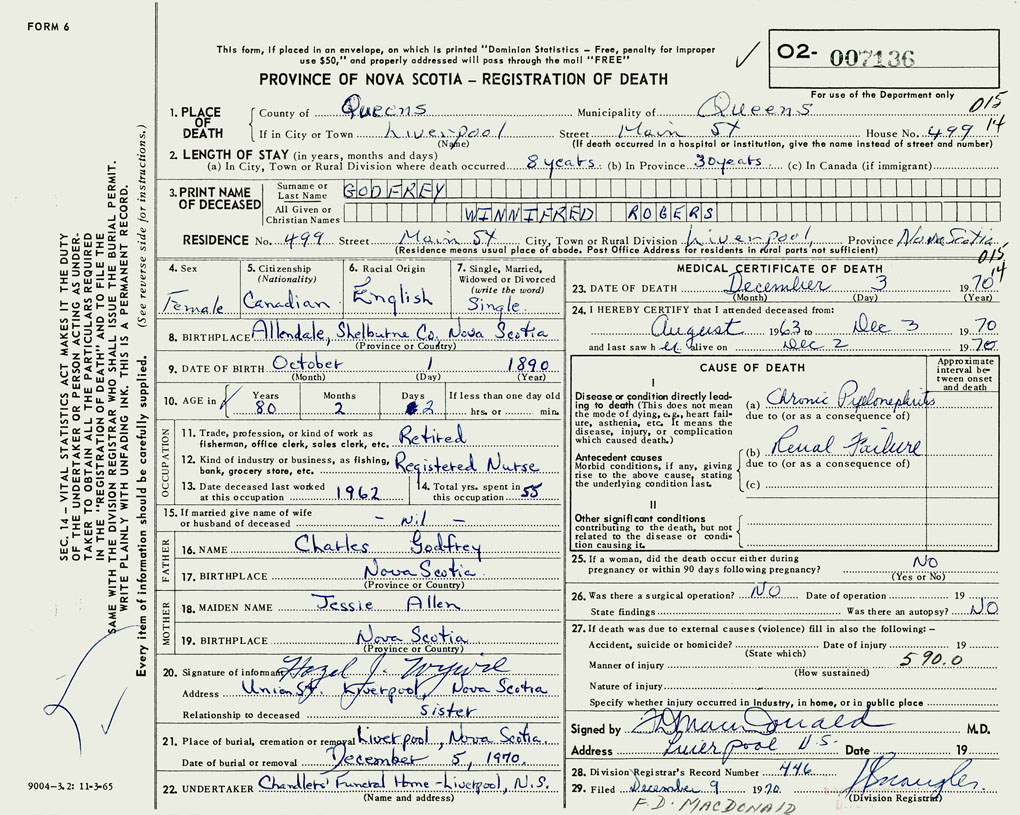 FORM 6
This form, if placed in an envelope, on which is printed "Dominion Statistics – Free, penalty for improper
use $50," and properly addressed will pass through the mail "FREE"
PROVINCE OF NOVA SCOTIA – REGISTRATION OF DEATH
O2- 007136
For use of the Department only
015
14
SEC. 14 – VITAL STATISTICS ACT MAKES IT THE DUTY
OF THE UNDERTAKER OR PERSON ACTING AS UNDER-
TAKER TO OBTAIN ALL THE PARTICULARS REQUIRED
IN THE "REGISTRATION OF DEATH" AND TO FILE THE
SAME WITH THE DIVISION REGISTRAR WHO SHALL ISSUE THE BURIAL PERMIT.
WRITE PLAINLY WITH UNFADING INK. THIS IS A PERMANENT RECORD.
Every item of information should be carefully supplied. (See reverse side for instructions.)
1. PLACE OF DEATH
County of Queens Municipality of Queens
If in City or Town Liverpool Street Main St House No. 499
(Name) (If death occurred in a hospital or institution, give the name instead of street and number)
2. LENGTH OF STAY (in years, months and days)
(a) In City, Town or Rural Division where death occurred 8 years (b) In Province 30 years (c) In Canada (if immigrant)
3. PRINT NAME OF DECEASED
Surname or Last Name GODFREY
All Given or Christian Names WINNIFRED ROGERS
RESIDENCE No. 499 Street Main St City, Town or Rural Division Liverpool, Province Nova Scotia
(Residence means usual place of abode. Post Office Address for residents in rural parts not sufficient)
015
14
4. Sex Female
5. Citizenship (Nationality) Canadian
6. Racial Origin English
7. Single, Married, Widowed or Divorced (write the word) Single
8. BIRTHPLACE Allendale, Shelburne Co, Nova Scotia
(Province or Country)
9. DATE OF BIRTH October 1 1890
(Month) (Day) (Year)
10. AGE in Years 80 Months 2 Days 2 If less than one day old hrs. or min.
OCCUPATION
11. Trade, profession, or kind of work as fisherman, office clerk, sales clerk, etc. Retired
12. Kind of industry or business, as fishing, bank, grocery store, etc. Registered Nurse
13. Date deceased last worked at this occupation 1962
14. Total yrs. spent in this occupation 55
15. If married give name of wife or husband of deceased - Nil -
FATHER
16. NAME Charles Godfrey
17. BIRTHPLACE Nova Scotia
(Province or Country)
MOTHER
18. MAIDEN NAME Jessie Allen
19. BIRTHPLACE Nova Scotia
(Province or Country)
20. Signature of informant Hazel J.
Address Union St. Liverpool, Nova Scotia
Relationship to deceased Sister
21. Place of burial, cremation or removal Liverpool, Nova Scotia
Date of burial or removal December 5, 1970.
22. UNDERTAKER Chandlers' Funeral Home – Liverpool, N.S.
(Name and address)
9004-3.2: 11-3-65
MEDICAL CERTIFICATE OF DEATH
23. DATE OF DEATH December 3 1970
(Month) (Day) (Year)
24. I HEREBY CERTIFY that I attended deceased from:
August 1963 to Dec 3 1970
and last saw her alive on Dec 2 1970
CAUSE OF DEATH
Approximate interval between onset and death
I
Disease or condition directly leading to death (This does not mean the mode of dying, e.g., heart failure, asthenia, etc. It means the disease, injury, or complication which caused death.)
(a) Chronic Pyelonephritis
due to (or as a consequence of)
Antecedent causes
Morbid conditions, if any, giving rise to the above cause, stating the underlying condition last.
(b) Renal Failure
due to (or as a consequence of)
(c)
II
Other significant conditions contributing to the death, but not related to the disease or condition causing it.
25. If a woman, did the death occur either during pregnancy or within 90 days following pregnancy? NO
(Yes or No)
26. Was there a surgical operation? NO Date of operation 19
State findings Was there an autopsy? NO
27. If death was due to external causes (violence) fill in also the following: –
Accident, suicide or homicide? Date of injury 19
(State which)
Manner of injury 590.0
(How sustained)
Nature of injury
Specify whether injury occurred in Industry, in home, or in public place
Signed by F D MacDonald M.D.
Address Liverpool N.S. Date 19
28. Division Registrar's Record Number 446
29. Filed December 9 1970.
(Division Registrar)
F.D. MACDONALD